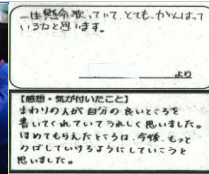 一生懸命歌っていて、とても、がんばって
いると思います。
より
【感想・気が付いたこと】
まわりの人が自分の良いところを
書いてくれていてうれしく思いました。
ほめてもらえたところは、今後、もっと
のばしていけるようにしていこうと
思いました。